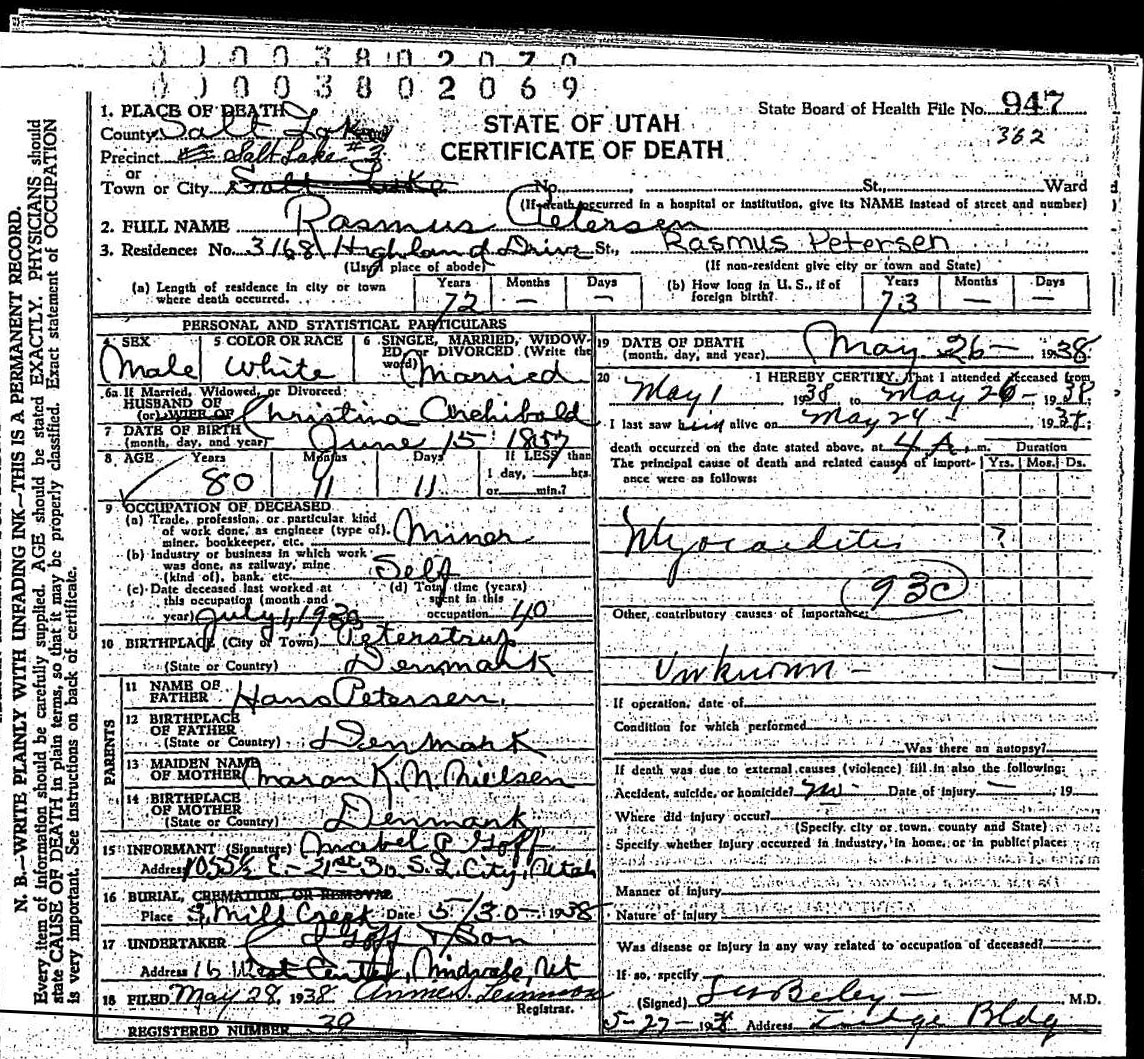 0 0 0 3 8 0 2 0 7 0
0 0 0 3 8 0 2 0 6 9
State Board of Health File No. 947
362
STATE OF UTAH
CERTIFICATE OF DEATH
1. PLACE OF DEATH
County Salt Lake
Precinct Salt Lake #3
or
Town or City Salt Lake No. St., Ward
(If death occurred in a hospital or institution, give its NAME instead of street and number)
2. FULL NAME Rasmus Petersen
3. Residence: No. 3168 Highland Drive St., Rasmus Petersen
(Usual place of abode) (If non-resident give city or town and State)
(a) Length of residence in city or town where death occurred. Years 72 Months — Days —
(b) How long in U. S., if of foreign birth? Years 73 Months — Days —
PERSONAL AND STATISTICAL PARTICULARS
4 SEX Male
5 COLOR OR RACE White
6 SINGLE, MARRIED, WIDOWED, or DIVORCED (Write the word) Married
6a If Married, Widowed, or Divorced
HUSBAND OF
(or) WIFE OF Christina Archibald
7 DATE OF BIRTH
(month, day, and year) June 15 1857
8 AGE Years 80 Months 11 Days 11 If LESS than 1 day, hrs. or min.?
9 OCCUPATION OF DECEASED
(a) Trade, profession, or particular kind
of work done, as engineer (type of),
miner, bookkeeper, etc. Miner
(b) Industry or business in which work
was done, as railway, mine
(kind of), bank, etc. Self
(c) Date deceased last worked at
this occupation (month and
year) July 1, 1930
(d) Total time (years)
spent in this
occupation 40
10 BIRTHPLACE (City or Town) Peterstrup
(State or Country) Denmark
PARENTS
11 NAME OF FATHER Hans Petersen
12 BIRTHPLACE OF FATHER
(State or Country) Denmark
13 MAIDEN NAME OF MOTHER Maron K. N. Nielsen
14 BIRTHPLACE OF MOTHER
(State or Country) Denmark
15 INFORMANT (Signature) Mabel P. Goff
Address 1055½ E. 21st So. S. L. City, Utah
16 BURIAL, CREMATION, OR REMOVAL
Place Mill Creek Date 5/30 1938
17 UNDERTAKER Goff & Son
Address 16 West Center, Midvale, Ut
18 FILED May 28, 1938
Registrar.
REGISTERED NUMBER 39
19 DATE OF DEATH
(month, day, and year) May 26 — 1938
20 I HEREBY CERTIFY, That I attended deceased from
May 1 1938 to May 26 — 1938.
I last saw him alive on May 24 1938;
death occurred on the date stated above, at 4 A. m. Duration
The principal cause of death and related causes of importance were as follows: Yrs. Mos. Ds.
Myocarditis ?
93c
Other contributory causes of importance:
Unknown —
If operation, date of
Condition for which performed
Was there an autopsy?
If death was due to external causes (violence) fill in also the following:
Accident, suicide, or homicide? no Date of injury — , 19
Where did injury occur?
(Specify city or town, county and State)
Specify whether injury occurred in industry, in home, or in public place:
Manner of injury
Nature of injury
Was disease or injury in any way related to occupation of deceased?
If so, specify
(Signed) M.D.
5-27-1938 Address Judge Bldg
N. B.—WRITE PLAINLY WITH UNFADING INK—THIS IS A PERMANENT RECORD.
Every item of information should be carefully supplied. AGE should be stated EXACTLY. PHYSICIANS should
state CAUSE OF DEATH in plain terms, so that it may be properly classified. Exact statement of OCCUPATION
is very important. See instructions on back of certificate.